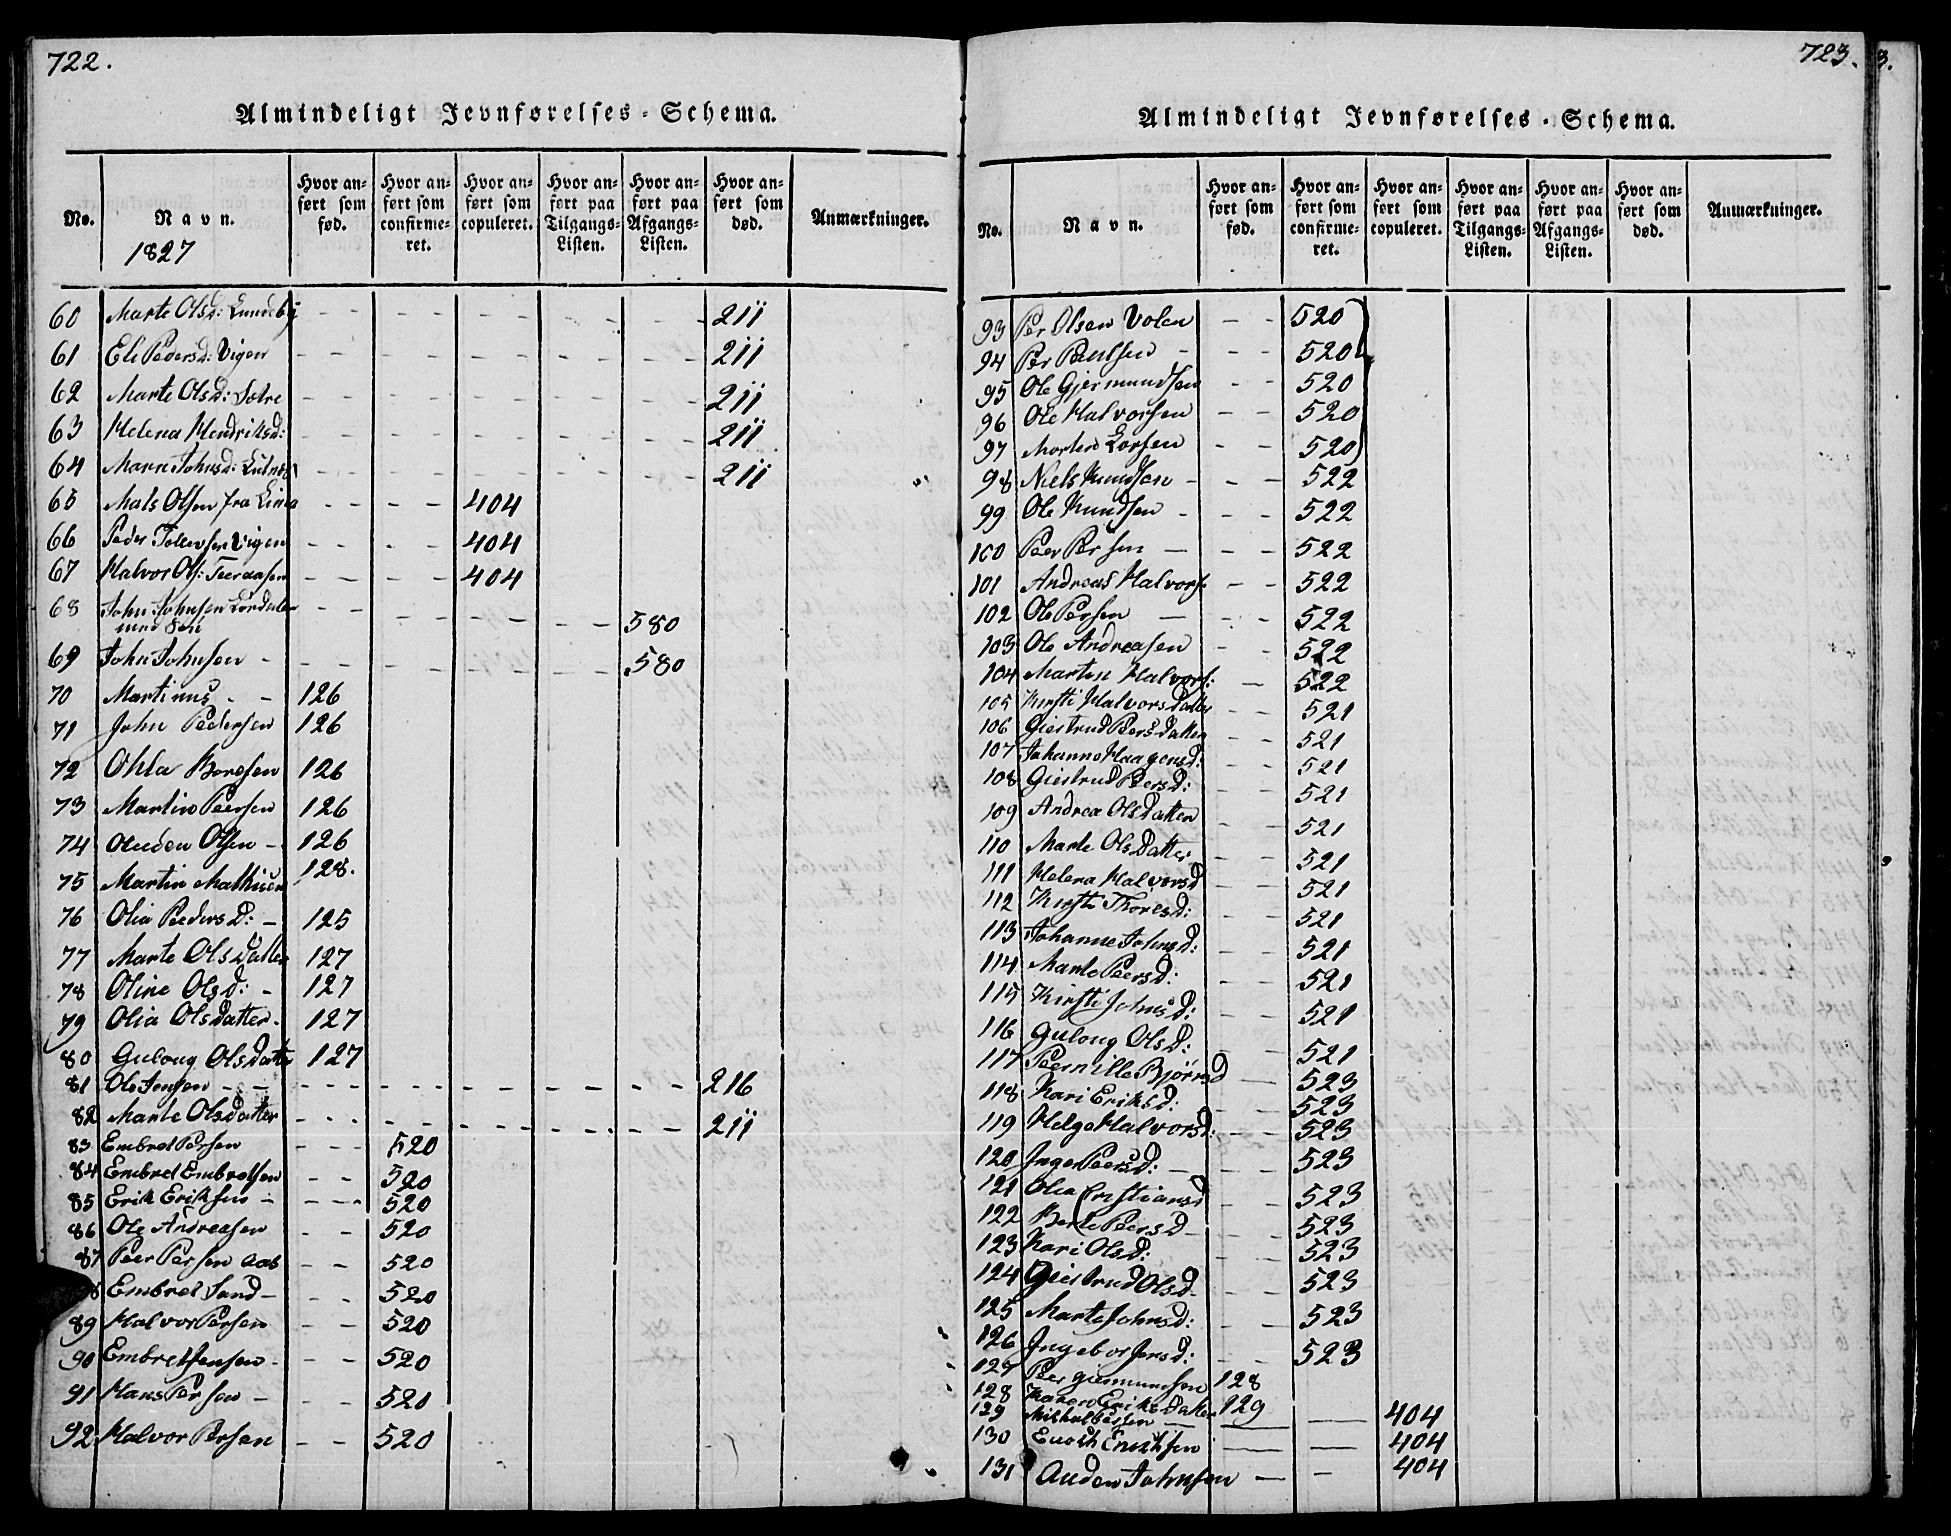 722.
Almindeligt Jevnførelses-Schema.
No. Navn. Hvor anført som fød. Hvor anført som confirmeret. Hvor anført som copuleret. Hvor anført paa Tilgangs-Listen. Hvor anført paa Afgangs-Listen. Hvor anført som død. Anmærkninger.
1827
60 Marte Olsd: Lundeby - - - - - 211
61 Eli Pedersd: Vigen - - - - - 211
62 Marte Olsd: Sætre - - - - - 211
63 Helena Hendriksd: - - - - - 211
64 Maren Johnsd: - - - - - 211
65 Mats Olsen fra Lima - - - - 404
66 Peder Tollevsen Vigen - - - - 404
67 Halvor Ols: - - - - 404
68 John Johnsen Lørdalen - - - - - - 580
med Søn
69 John Johnsen - - - - - - 580
70 Martinus - - 126
71 John Pedersen 126
72 Ohla Boresen 126
73 Martin Peersen 126
74 Ouden Olsen - 126
75 Martin Mathisen 128.
76 Olia Pedersd: - 125
77 Marte Olsdatter 127
78 Oline Olsd: - 127
79 Olia Olsdatter. 127
80 Gulong Olsdatter 127
81 Ole Jensen - - - - - - 216
82 Marte Olsdatter - - - - - 211
83 Embret Persen - - - 520
84 Embret Embretsen - - 520
85 Erik Eriksen - - - - 520
86 Ole Andreasen - - 520
87 Peer Persen Aas - - 520
8 Embret Sand - - - 520
89 Halvor Persen - - 520
90 Embret Jensen - - - 520
91 Hans Persen - - - 520
92 Halvor Persen - - 520
723.
Almindeligt Jevnførelses-Schema.
No. Navn. Hvor anført som fød. Hvor anført som confirmeret. Hvor anført som copuleret. Hvor anført paa Tilgangs-Listen. Hvor anført paa Afgangs-Listen. Hvor anført som død. Anmærkninger.
93 Per Olsen Volen - - 520
94 Per Paulsen - - - 520
95 Ole Gjermundsen - - 520
96 Ole Halvorsen - - 520
97 Morten Larsen - - 520
98 Niels Knudsen - - - 522
99 Ole Knudsen - - - 522
100 Peer Persen - - - 522
101 Andreas Halvors: - - 522
102 Ole Persen - - - 522
103 Ole Andreasen - - 522
104 Marten Halvors: - 522
105 Kirsti Halvorsdatter - - 521
106 Giertrud Peersdatter - - 521
107 Johanne Haagensd: - - 521
108 Giertrud Peersd: - - 521
109 Andrea Olsdatter - - 521
110 Marte Olsdatter - - 521
111 Helena Halvorsd - - 521
112 Kirsti Thoresd: - - 521
113 Johanne Johnsd: - - 521
114 Marte Peersd: - - 521
115 Kirsti Johnsd: - - 521
116 Gulong Olsd: - - 521
117 Peernille Bjørnsd - 523
118 Kari Eriksd: - - 523
119 Helge Halvorsd: - - 523
120 Inger Peersd: - - - 523
121 Olea Cristiansd - - 523
122 Berte Peersd - - - 523
123 Kari Olsd: - - 523
124 Giertrud Olsd - - - 523
125 Marte Johnsd: - - 523
126 Ingebor Jensd: - - 523
127 Peer Giermundsen 128
128 Karen Eriksdatter 129
129 Mickel Persen - - - 404
130 Enoch Enochsen - - 404
131 Auden Johnsen - - 404
3.